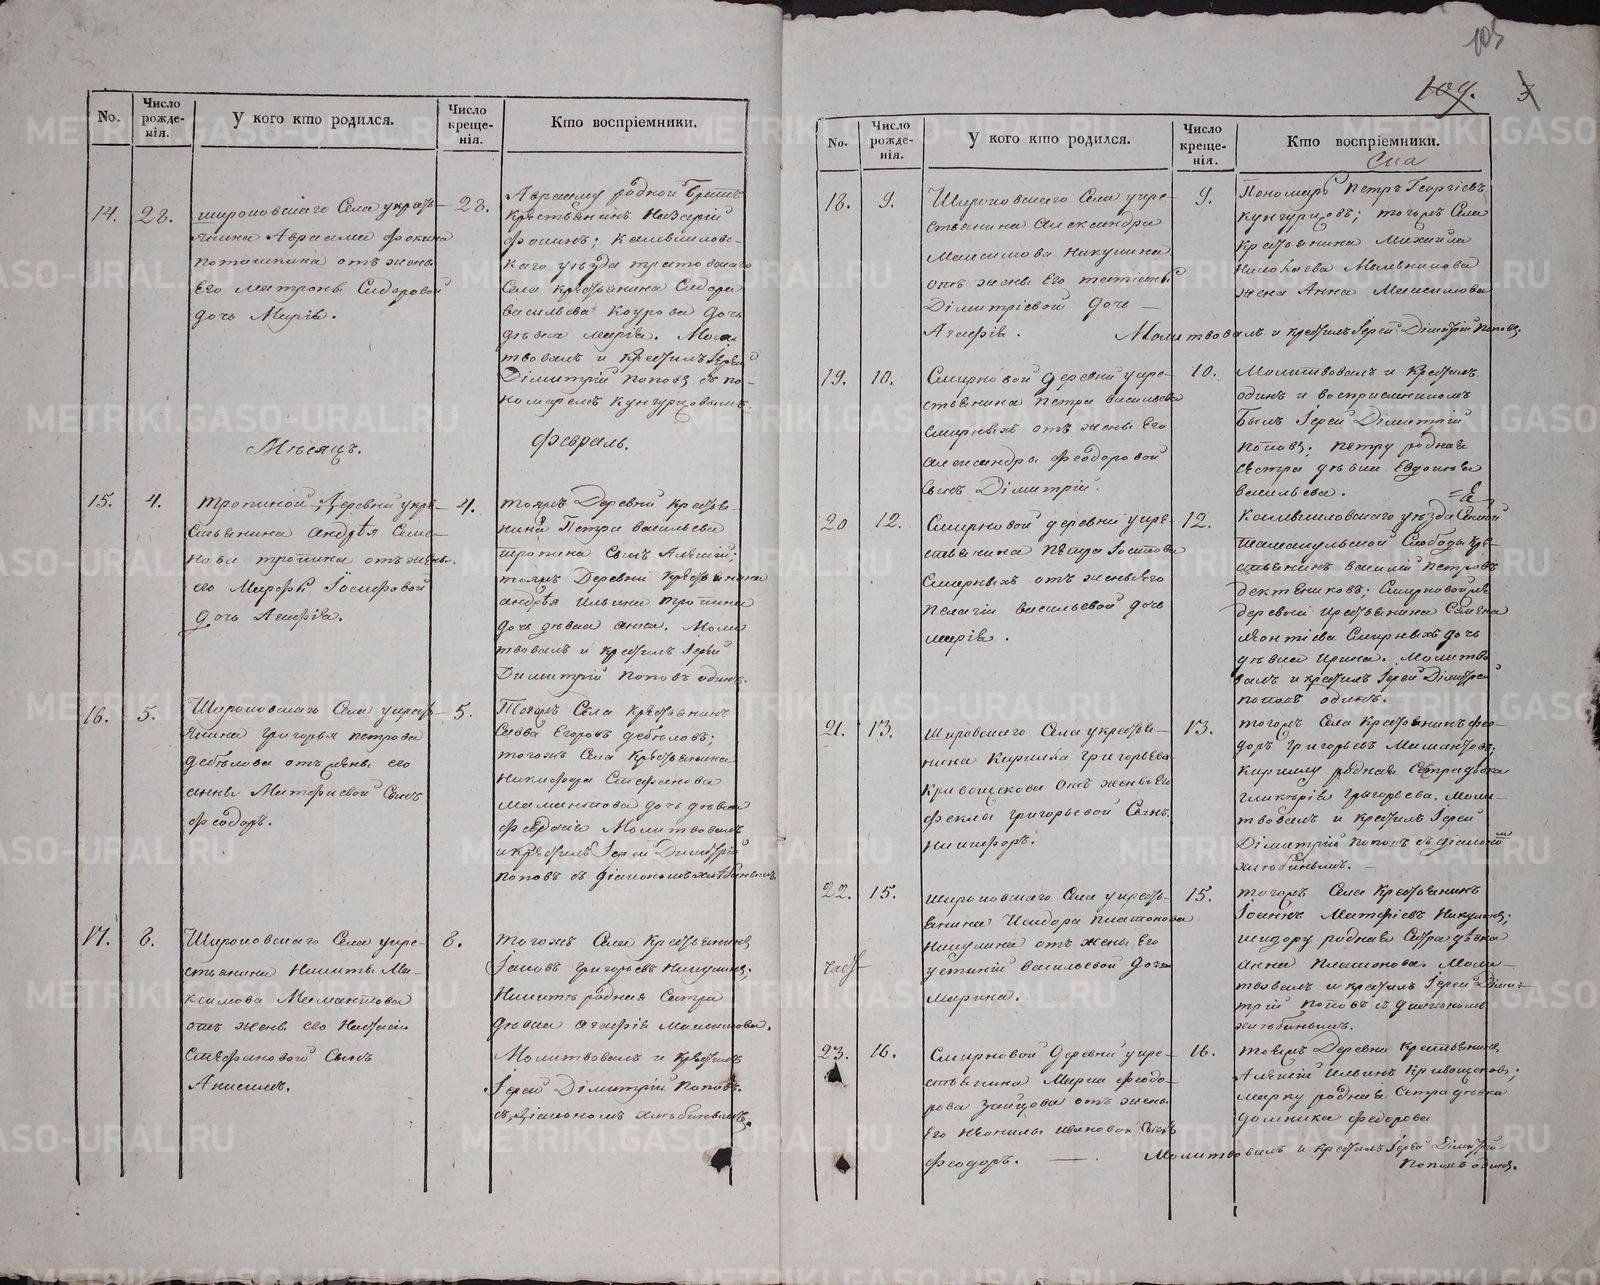 105
109.
3
No.
Число рожде-нія.
У кого кто родился.
Число креще-нія.
Кто воспріемники.
14.
28.
Широковскаго Села укресть-
янина Авраама Фокина
Поташкина отъ жены
Его Матроны Сидоровой
дочь Марія.
28.
Аврааму родной Братъ
Крестьянинъ Назарій
Фокинъ; Камышловс-
каго уѣзда
Села крестьянина Сидора
Васильева дочь
дѣвка Марія. Моли
твовалъ и крестилъ Іерей
Дімитрій Поповъ съ по-
номаремъ Кунгурцовымъ.
Мѣсяцъ.
Февраль.
15.
4.
Тропиной Деревни укре-
стьянина Андрѣя Семе-
нова Тропина отъ жены
его Марфы Іосифовой
дочь Агафія.
4.
тояжъ Деревни крестья-
нина Петра Васильева
Тропина сынъ Алексій;
тояжъ Деревни Крестьянина
Андрѣя Ильина Тропина
дочь дѣвка Анна. Моли
твовалъ и крестилъ Іерей
Димитрій Поповъ одинъ.
16.
5.
Широковскаго Села укресть-
янина Григорья Петрова
Дебѣлова отъ жены его
Анны Матфиевой Сынъ
Феодоръ.
5.
Тогожъ Села крестьянинъ
Савва Егоровъ Дебѣловъ;
тогожъ Села Крестьянина
Никифора Стефанова
Мамантова дочь дѣвка
Феодосія Молитвовалъ
и крестилъ Іерей Димитрій
Поповъ съ діакономъ Хлѣбинымъ.
17.
8.
Широковскаго Села укре-
стьянина Никиты Ма-
ксимова Мамантова
отъ жены его Настасіи
Стефановой Сынъ
Анисимъ.
8.
тогожъ Села Крестьянинъ
Іаковъ Григорьевъ Никулинъ;
Никитѣ родная Сестра
дѣвка Агафія Максимова.
Молитвовалъ и крестилъ
Іерей Дімитрій Поповъ
съ Діакономъ Хлѣбинымъ.
No.
Число рожде-нія.
У кого кто родился.
Число креще-нія.
Кто воспріемники.
18.
9.
Широковскаго Села укре-
стьянина Александра
Максимова Никулина
отъ жены Его Татіаны
Дімитріевой дочь
Агафія.
9.
Пономарь Петръ Георгіевъ
Кунгурцовъ; тогожъ Села
крестьянина Михаила
Николаева Мельникова
жена Анна Максимова
Молитвовалъ и крестилъ Іерей Дімитрій Поповъ
19.
10.
Смирновой деревни укре-
стьянина Петра Васильева
Смирныхъ отъ жены Его
Александры Феодоровой
Сынъ Дімитрій.
10.
Молитвовалъ и Крестилъ
одинъ и воспріемникомъ
Былъ Іерей Дімитрій
Поповъ; Петру родная
сестра дѣвка Евдокія
Васильева.
20
12.
Смирновой деревни укре-
стьянина Петра
Смирныхъ отъ жены Его
Пелагіи Васильевой дочь
Марія.
12.
Камышловскаго уѣзда
Слободы кре-
стьянинъ Василій Петровъ
Смирновой же
деревни крестьянина Семена
Леонтіева Смирныхъ дочь
дѣвка Ирина. Молитво
валъ и крестилъ Іерей Дімитрій
Поповъ одинъ.
21.
13.
Шировскаго Села укрестья-
нина Кирилла Григорьева
Кривощекова отъ жены Его
Феклы Григорьевой Сынъ
Никифоръ.
13.
тогожъ Села Крестьянинъ Фео-
доръ Григорьевъ Мамантовъ;
Кирилу родная Сестра дѣвка
Гликерія Григорьева. Моли-
твовалъ и крестилъ Іерей
Дімитрій Поповъ съ діакономъ
Хлѣбинымъ.
22.
15.
Широковскаго Села укресть-
янина Исидора Платонова
Никулина отъ жены Его
Устиніи Васильевой дочь
Марина.
15.
тогожъ Села Крестьянинъ
Іоаннъ Матфіевъ Никулинъ;
Исидору родная Сестра дѣвка
Анна Платонова. Моли-
твовалъ и крестилъ Іерей Дими-
трій Поповъ съ діакономъ
Хлѣбинымъ.
23.
16.
Смирновой Деревни укре-
стьянина Марка Феодо-
рова Зайцова отъ жены
Его Неонилы Ивановой Сынъ
Феодоръ.
16.
тояжъ Деревни Крестьянинъ
Алексій Ильинъ Кривощековъ;
Марку родная Сестра дѣвка
Домника Федорова
Молитвовалъ и крестилъ Іерей Дімитрій
Поповъ одинъ.
METRIKI.GASO-URAL.RU